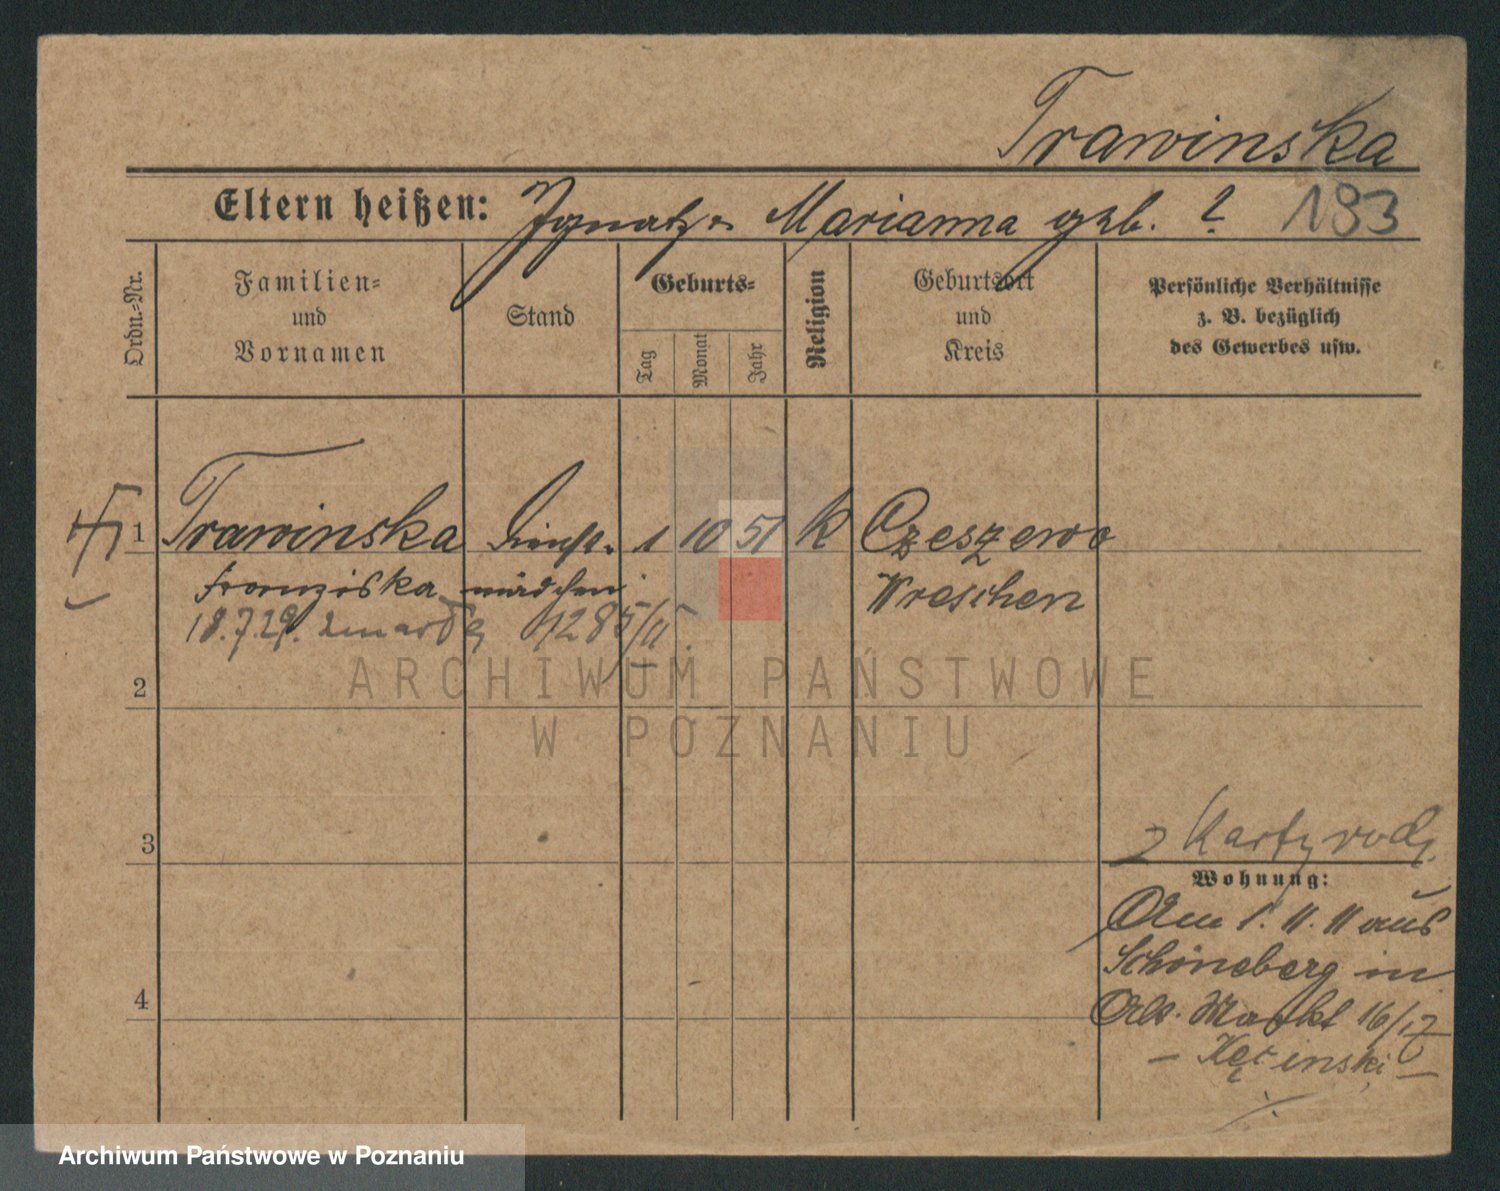 Trawinska
Eltern heißen: Ignatz u. Marianna geb. ?
193
Ordn.-Nr.
Familien=
und
Vornamen
Stand
Geburts=
Tag
Monat
Jahr
Religion
Geburtsort
und
Kreis
Persönliche Verhältnisse
z. B. bezüglich
des Gewerbes usw.
1 Trawinska Dienst- 1 10 51 k Czeszewo
Franziska mädchen Wreschen
18.7.29. zmarła 1285/II.
2
3
4
z Karty rodz.
Wohnung:
Am 1. 11. 11 aus
Schöneberg in
Alt. Markt 16/17
ARCHIWUM PAŃSTWOWE
W POZNANIU
Archiwum Państwowe w Poznaniu